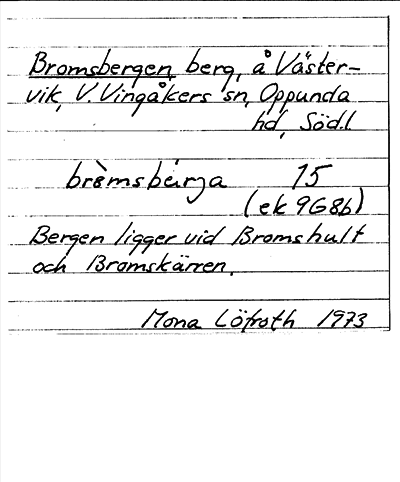 Bromsbergen, berg, å Väster-
vik, V. Vingåkers sn, Oppunda
hd, Södl.
15
(ek 9G8b)
Bergen ligger vid Bromshult
och Bromskärren.
Mona Löfroth 1973